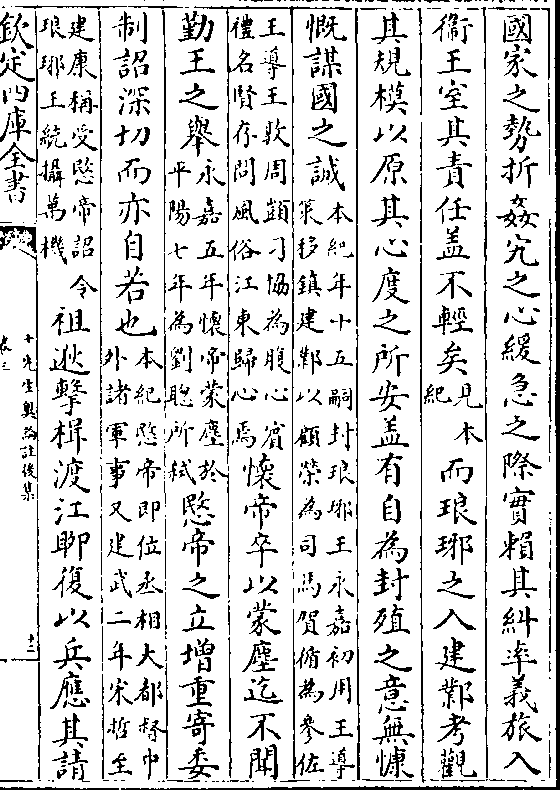 國家之勢折姦宄之心緩急之際實賴其糾率義旅入
衞王室其責任盖不輕矣見本紀而琅琊之入建鄴考觀
其規模以原其心度之所安盖有自為封殖之意無慷
慨謀國之誠本紀年十五嗣封琅琊王永嘉初用王導
䇿移鎮建鄴以顧榮為司馬賀循為參佐
王導王敦周顗刁恊為腹心賓
禮名賢存問風俗江東歸心焉懷帝卒以蒙塵迄不聞
勤王之舉永嘉五年懷帝蒙塵於
平陽七年為劉聰所弑愍帝之立增重寄委
制詔深切而亦自若也本紀愍帝即位丞相大都督中
外諸軍事又建武二年宋哲至
建康稱受愍帝詔
琅琊王統攝萬機令祖逖擊楫渡江聊復以兵應其請
欽定四庫全書
十先生奥論註後集
卷三
十二